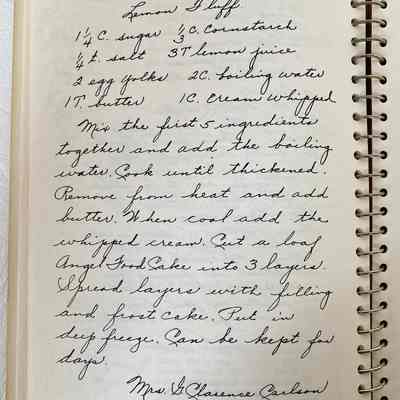 Lemon Fluff
1 1/4 C. sugar 1/3 C. Cornstarch
1/4 t. salt 3T lemon juice
2 egg yolks 2C. boiling water
1T. butter 1C. Cream whipped
Mix the first 5 ingredients
together and add the boiling
water. Cook until thickened.
Remove from heat and add
butter. When cool add the
whipped cream. Cut a loaf
Angel Food Cake into 3 layers.
Spread layers with filling
and frost cake. Put in
deep freeze. Can be kept for
days.
Mrs. G Clarence Carlson